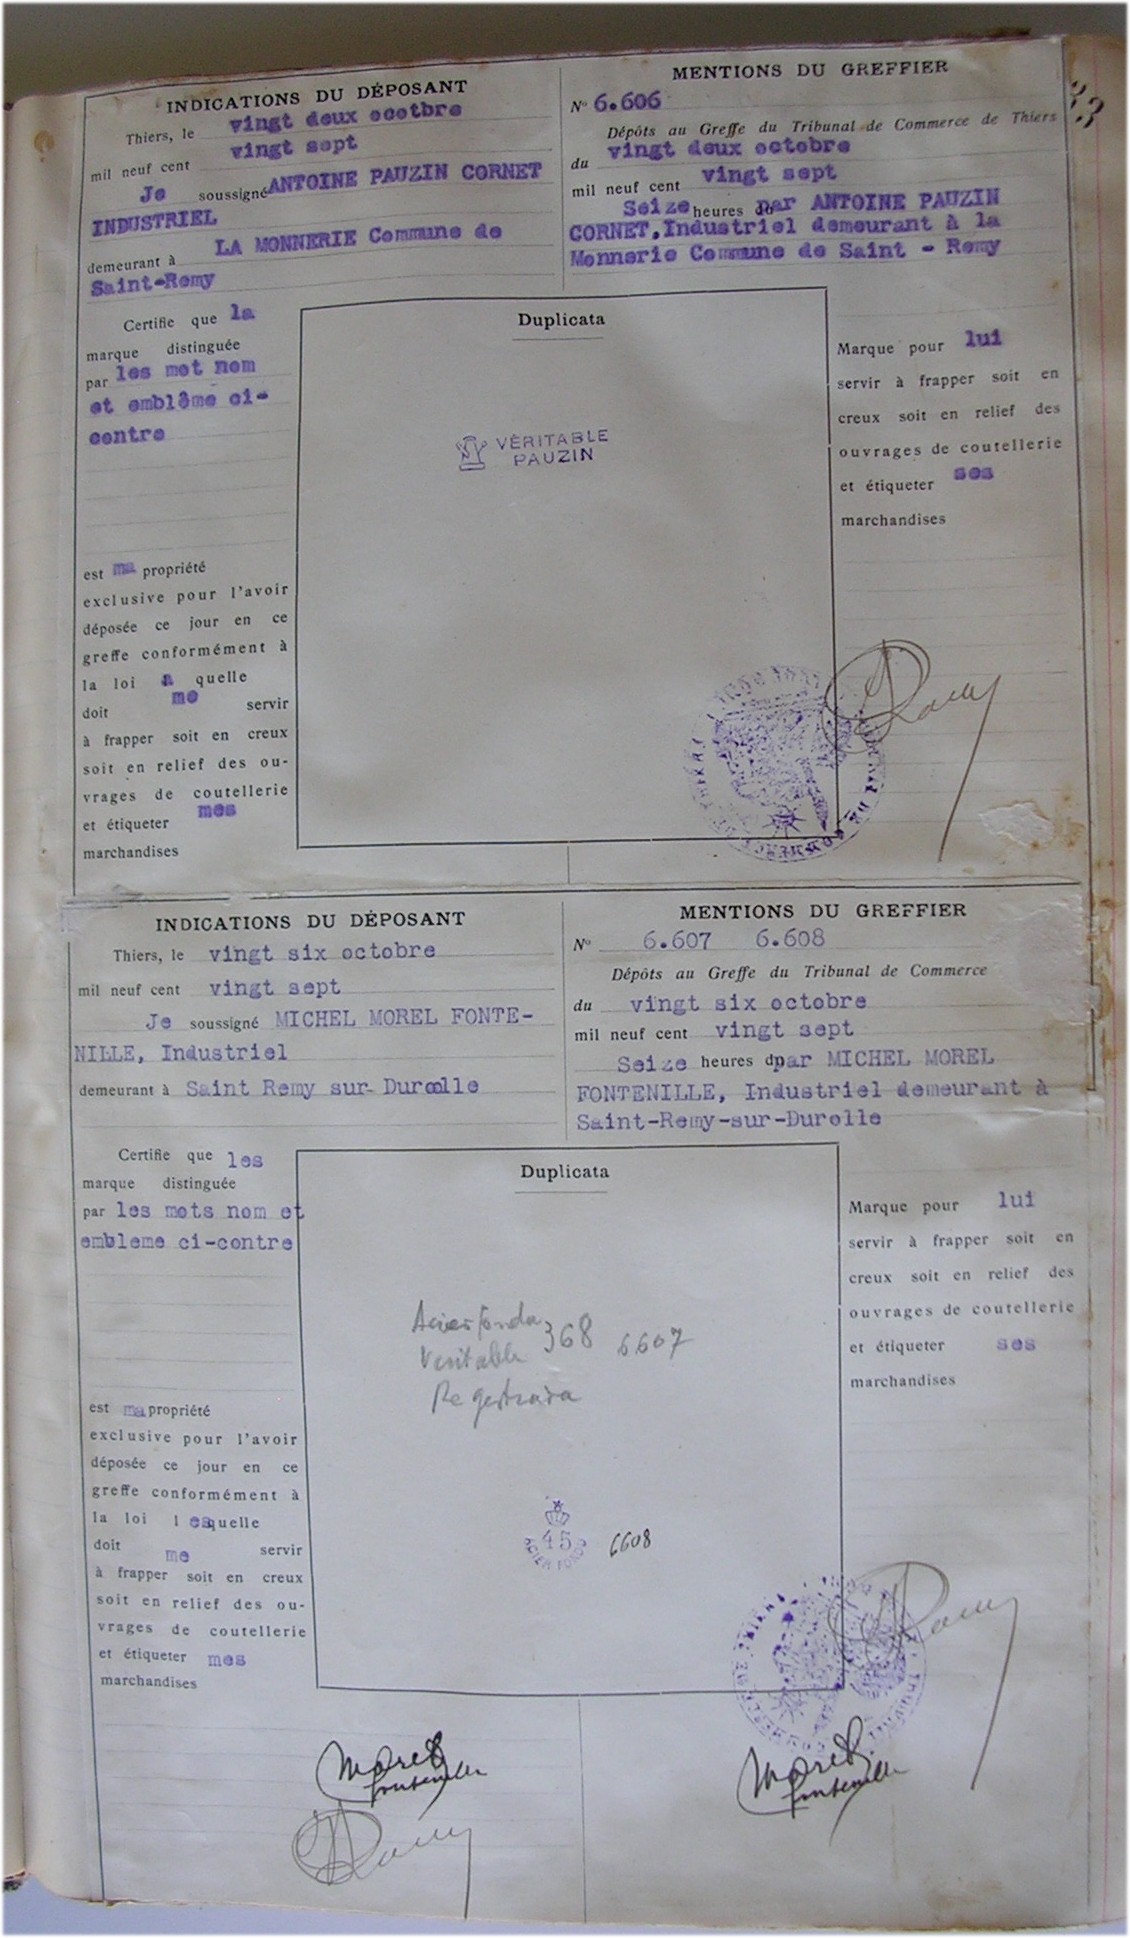 INDICATIONS DU DÉPOSANT
Thiers, le vingt deux ocotbre
mil neuf cent vingt sept
Je soussigné ANTOINE PAUZIN CORNET
INDUSTRIEL
demeurant à LA MONNERIE Commune de
Saint-Remy
MENTIONS DU GREFFIER
No 6.606
Dépôts au Greffe du Tribunal de Commerce de Thiers
du vingt deux octobre
mil neuf cent vingt sept
Seize heures par ANTOINE PAUZIN
CORNET, Industriel demeurant à la
Monnerie Commune de Saint - Remy
Certifie que la
marque distinguée
par les mot nom
et emblême ci-
contre
est ma propriété
exclusive pour l'avoir
déposée ce jour en ce
greffe conformément à
la loi a quelle
doit me servir
à frapper soit en creux
soit en relief des ou-
vrages de coutellerie
et étiqueter mes
marchandises
Duplicata
VÉRITABLE
PAUZIN
Marque pour lui
servir à frapper soit en
creux soit en relief des
ouvrages de coutellerie
et étiqueter ses
marchandises
33
INDICATIONS DU DÉPOSANT
Thiers, le vingt six octobre
mil neuf cent vingt sept
Je soussigné MICHEL MOREL FONTE-
NILLE, Industriel
demeurant à Saint Remy sur Durolle
MENTIONS DU GREFFIER
No 6.607 6.608
Dépôts au Greffe du Tribunal de Commerce
du vingt six octobre
mil neuf cent vingt sept
Seize heures par MICHEL MOREL
FONTENILLE, Industriel demeurant à
Saint-Remy-sur-Durolle
Certifie que les
marque distinguée
par les mots nom et
embleme ci-contre
est ma propriété
exclusive pour l'avoir
déposée ce jour en ce
greffe conformément à
la loi lesquelle
doit me servir
à frapper soit en creux
soit en relief des ou-
vrages de coutellerie
et étiqueter mes
marchandises
Duplicata
Acier fondu
Veritable 368 6607
45
ACIER FONDU
6608
Marque pour lui
servir à frapper soit en
creux soit en relief des
ouvrages de coutellerie
et étiqueter ses
marchandises
Morel
fontenille
Morel
fontenille